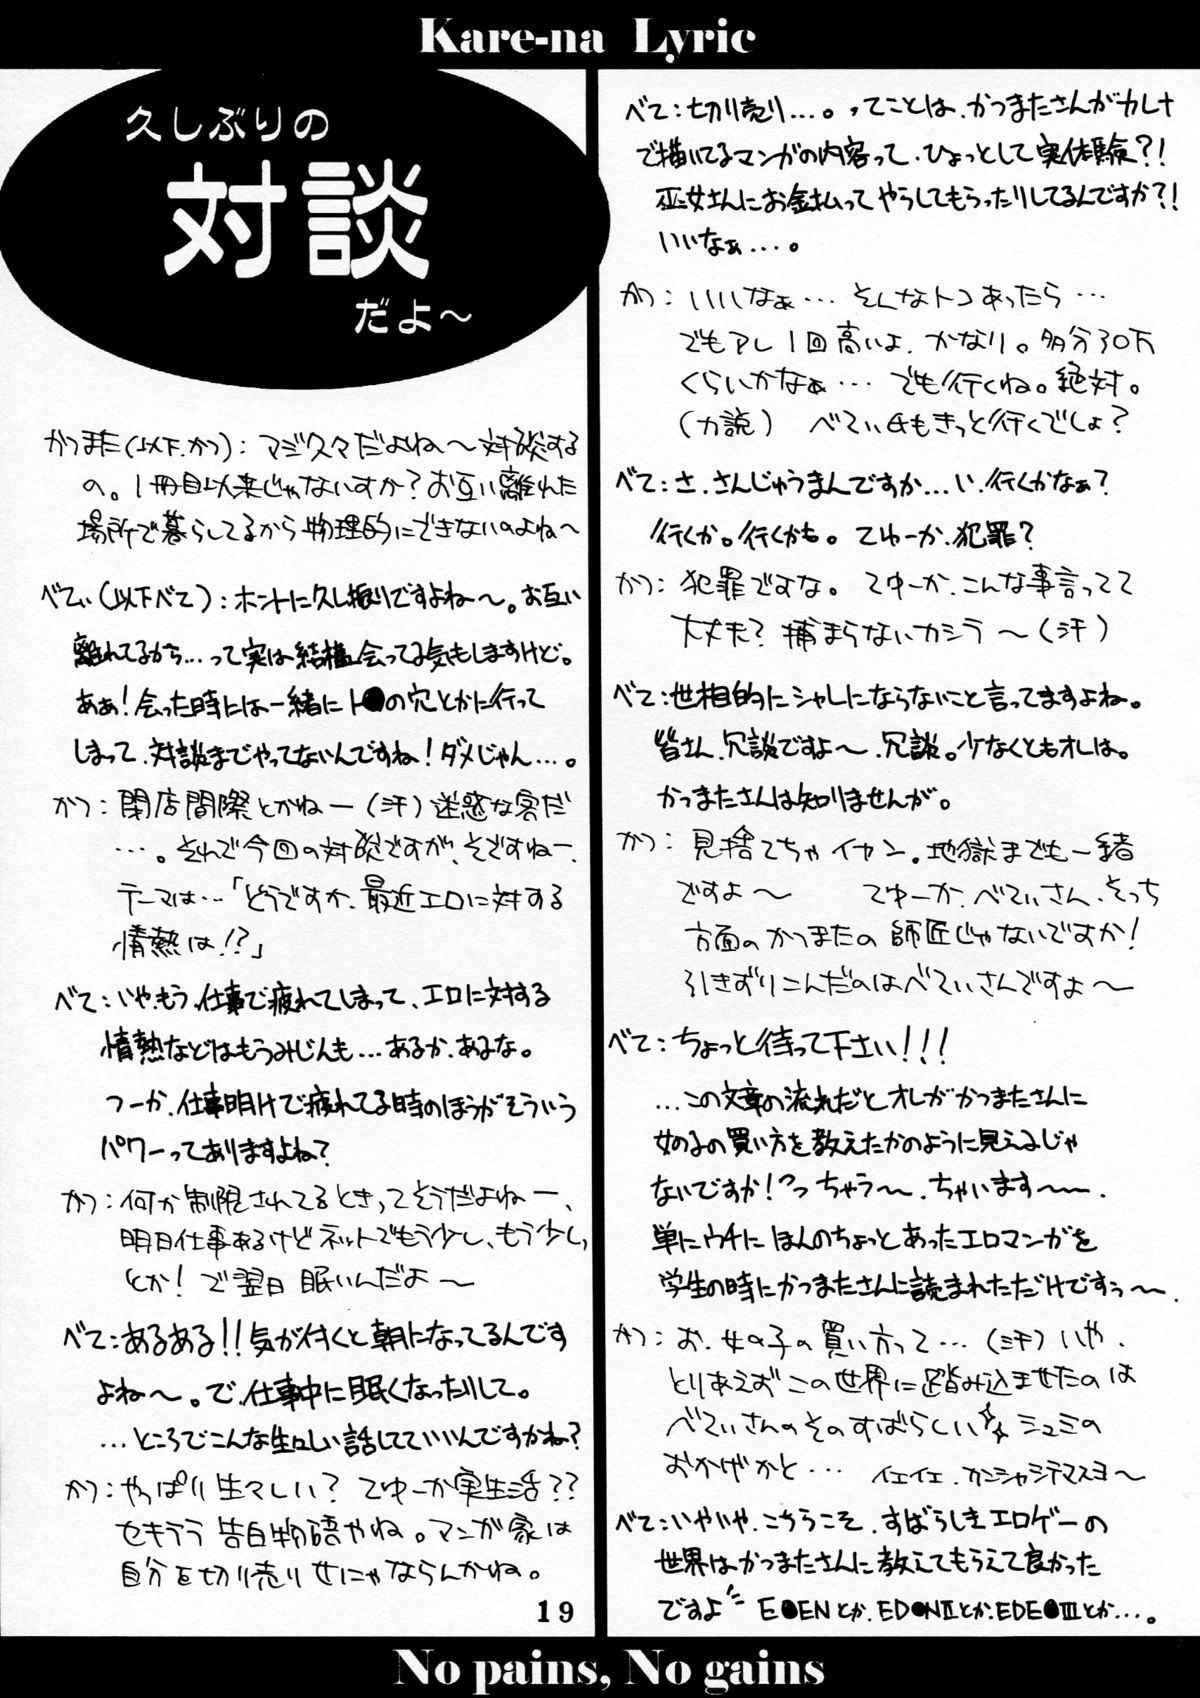 Kare-na Lyric
久しぶりの
対談
だよ～
かつまた(以下、かつ): マジ久々だよね～対談する
の。1冊目以来じゃないすか?お互い離れた
場所で暮らしてるから物理的にできないのよね～
べてぃ(以下べて): ホントに久し振りですよね～。お互い
離れてるから…って実は結構会ってる気もしますけど。
あぁ!会った時には一緒にト●の穴とかに行って
しまって、対談までやってないんですね!ダメじゃん…。
かつ: 閉店間際とかねー(汗)迷惑な客だ
…。そんで今回の対談ですが、そですねー、
テーマは…「どうですか、最近エロに対する
情熱は!?」
べて: いや、もう、仕事で疲れてしまって、エロに対する
情熱などはもうみじんも…あるか、あるな。
つーか、仕事明けで疲れてる時のほうがそういう
パワーってありますよね?
かつ: 何か制限されてるときってそうだよねー、
明日仕事あるけどネットでもう少し、もう少し、
とか!で翌日眠いんだよ～
べて: あるある!!気が付くと朝になってるんです
よね～。で、仕事中に眠くなったりして。
…ところでこんな生々しい話してていいんですかね?
かつ: やっぱり生々しい?てゆーか実生活??
セキララ告白物語やね。マンガ家は
自分を切り売りせにゃならんかね。
19
べて: 切り売り…。ってことは、かつまたさんがカレナ
で描いてるマンガの内容って、ひょっとして実体験?!
巫女さんにお金払ってやらしてもらったりしてるんですか?!
いいなぁ…。
かつ: いいなぁ…そんなトコあったら…
でもアレ1回高いよ、かなり。多分30万
くらいかなぁ…でも行くね。絶対。
(力説) べてぃ氏もきっと行くでしょ?
べて: さ、さんじゅうまんですか…い、行くかなぁ?
行くか。行くかも。てゆーか、犯罪?
かつ: 犯罪ですな。てゆーか、こんな事言ってて
大丈夫?捕まらないカシラ～(汗)
べて: 世相的にシャレにならないこと言ってますよね。
皆さん、冗談ですよ～、冗談。少なくともオレは。
かつまたさんは知りませんが。
かつ: 見捨てちゃイヤン。地獄までも一緒
ですよ～ てゆーか、べてぃさん、そっち
方面のかつまたの師匠じゃないですか!
引きずりこんだのはべてぃさんですよ～
べて: ちょっと待って下さい!!!
…この文章の流れだとオレがかつまたさんに
女の子の買い方を教えたかのように見えるじゃ
ないですか!?っちゃう～、ちゃいます～～、
単にウチにほんのちょっとあったエロマンガを
学生の時にかつまたさんに読まれただけですぅ～、
かつ: お、女の子の買い方って…(汗)いや、
とりあえずこの世界に踏み込ませたのは
べてぃさんのそのすばらしい☆シュミの
おかげかと… イエイエ、カンシャシテマスヨ～
べて: いやいや、こちらこそ、すばらしきエロゲーの
世界はかつまたさんに教えてもらえて良かった
ですよ E●ENとか、ED●NⅡとか、EDE●Ⅲとか…。
No pains, No gains